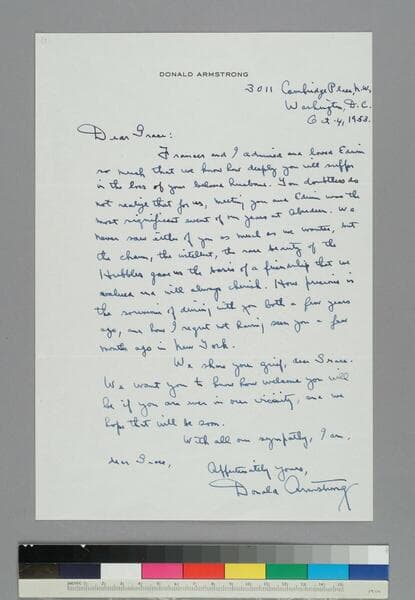 DONALD ARMSTRONG
3011 Cambridge Place, N.W.
Washington, D.C.
Oct. 4, 1953.
Dear Grace:
Frances and I admired and loved Edwin
so much that we know how deeply you will suffer
in the loss of your beloved husband. You doubtless do
not realize that for us, meeting you and Edwin was the
most significant event of our years at Aberdeen. We
never saw either of you as much as we wanted, but
the charm, the intellect, the rare beauty of the
Hubbles gave us the basis of a friendship that we
valued and will always cherish. How precious is
the souvenir of dining with you both a few years
ago, and how I regret not having seen you a few
months ago in New York.
We share your grief, dear Grace.
We want you to know how welcome you will
be if you are ever in our vicinity, and we
hope that will be soon.
With all our sympathy, I am,
dear Grace,
Affectionately yours,
Donald Armstrong